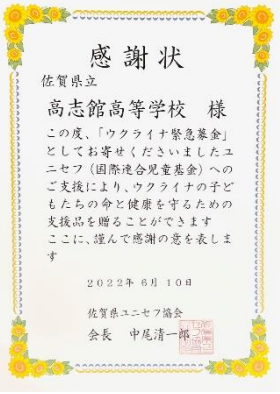 感謝状
佐賀県立
高志館高等学校　様
この度、「ウクライナ緊急募金」
としてお寄せくださいましたユ
ニセフ（国際連合児童基金）への
ご支援により、ウクライナの子ど
もたちの命と健康を守るための
支援品を贈ることができます
ここに、謹んで感謝の意を表しま
す
２０２２年　６月　１０日
佐賀県ユニセフ協会
会長　中尾清一郎